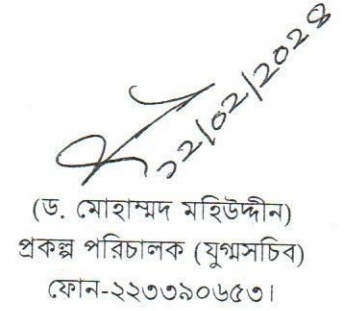 ১২/০২/২০২৪
(ড. মোহাম্মদ মহিউদ্দীন)
প্রকল্প পরিচালক (যুগ্মসচিব)
ফোন-২২৩৩৯০৬৫৩।